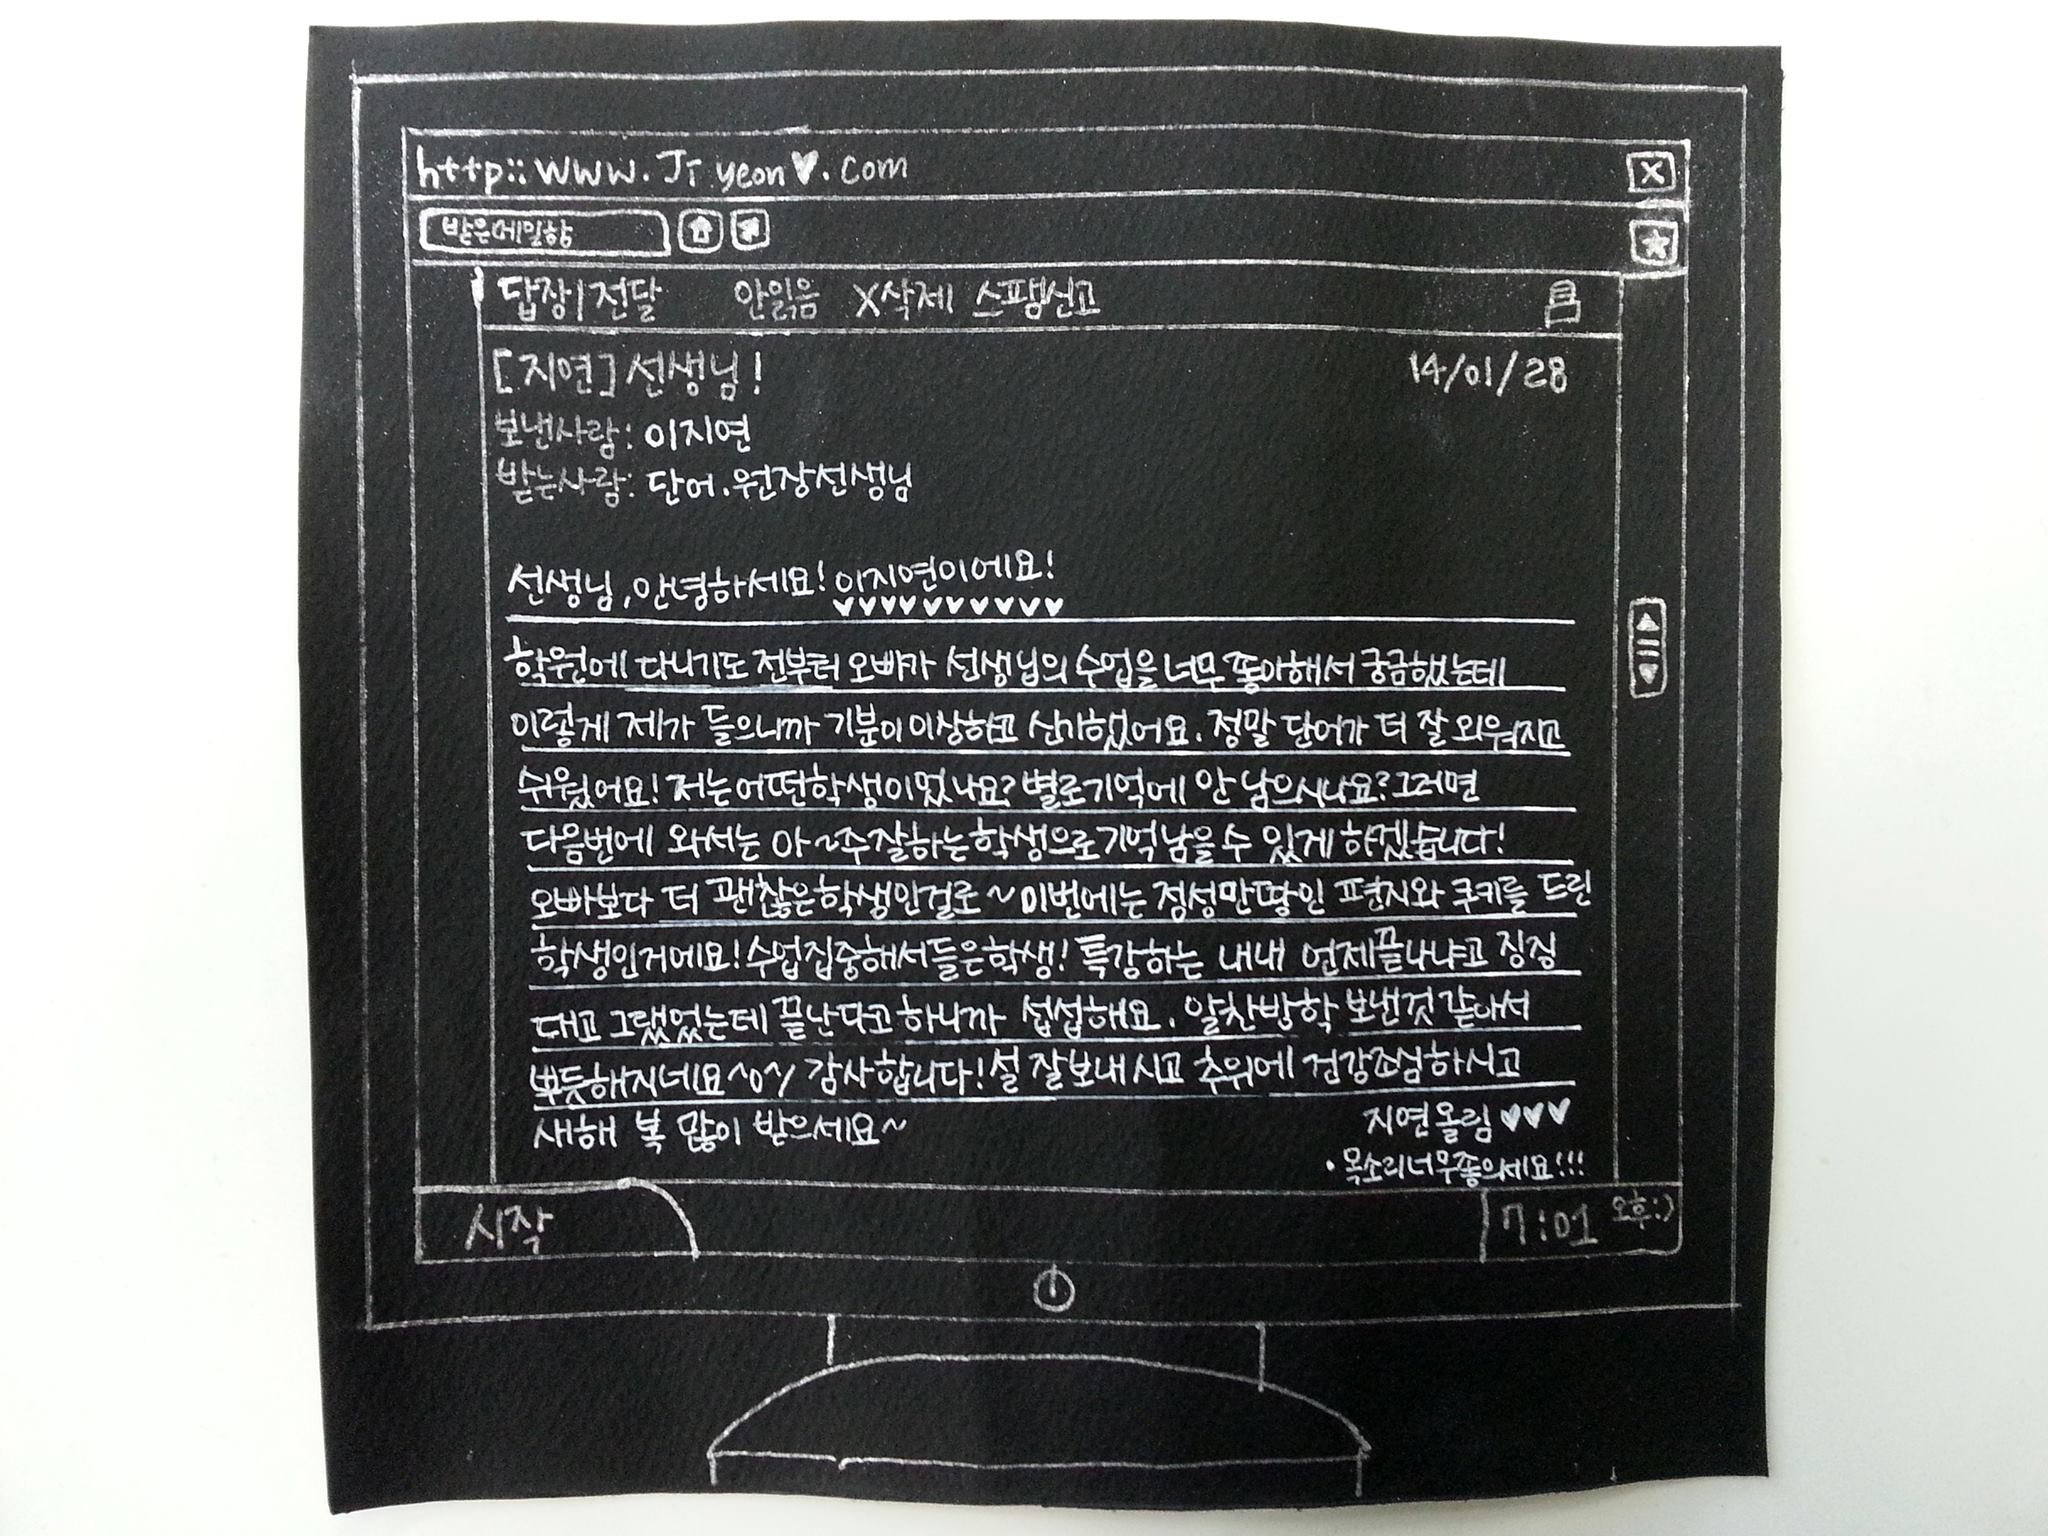 http:: www.Jiyeon♥.com
X
받은메일함
답장/전달 안읽음 X삭제 스팸신고
[지연] 선생님! 14/01/28
보낸사람: 이지연
받는사람: 단어.원장선생님
선생님, 안녕하세요! 이지연이에요!
♥♥♥♥♥♥♥♥♥♥
학원에 다니기도 전부터 오빠가 선생님의 수업을 너무 좋아해서 궁금했는데
이렇게 제가 들으니까 기분이 이상하고 신기했어요. 정말 단어가 더 잘 외워지고
쉬웠어요! 저는 어떤학생이었나요? 별로 기억에 안 남으시나요? 그러면
다음번에 와서는 아~주 잘하는 학생으로 기억남을 수 있게 하겠습니다!
오빠보다 더 괜찮은 학생인걸로~ 이번에는 정성만땅인 편지와 쿠키를 드린
학생인거에요! 수업집중해서 들은 학생! 특강하는 내내 언제끝나냐고 징징
대고 그랬었는데 끝난다고 하니까 섭섭해요. 알찬방학 보낸것 같아서
뿌듯해지네요~o~/ 감사합니다! 설 잘보내시고 추위에 건강조심하시고
새해 복 많이 받으세요~ 지연올림 ♥♥♥
• 목소리너무좋으세요!!!
시작 7:01 오후:)